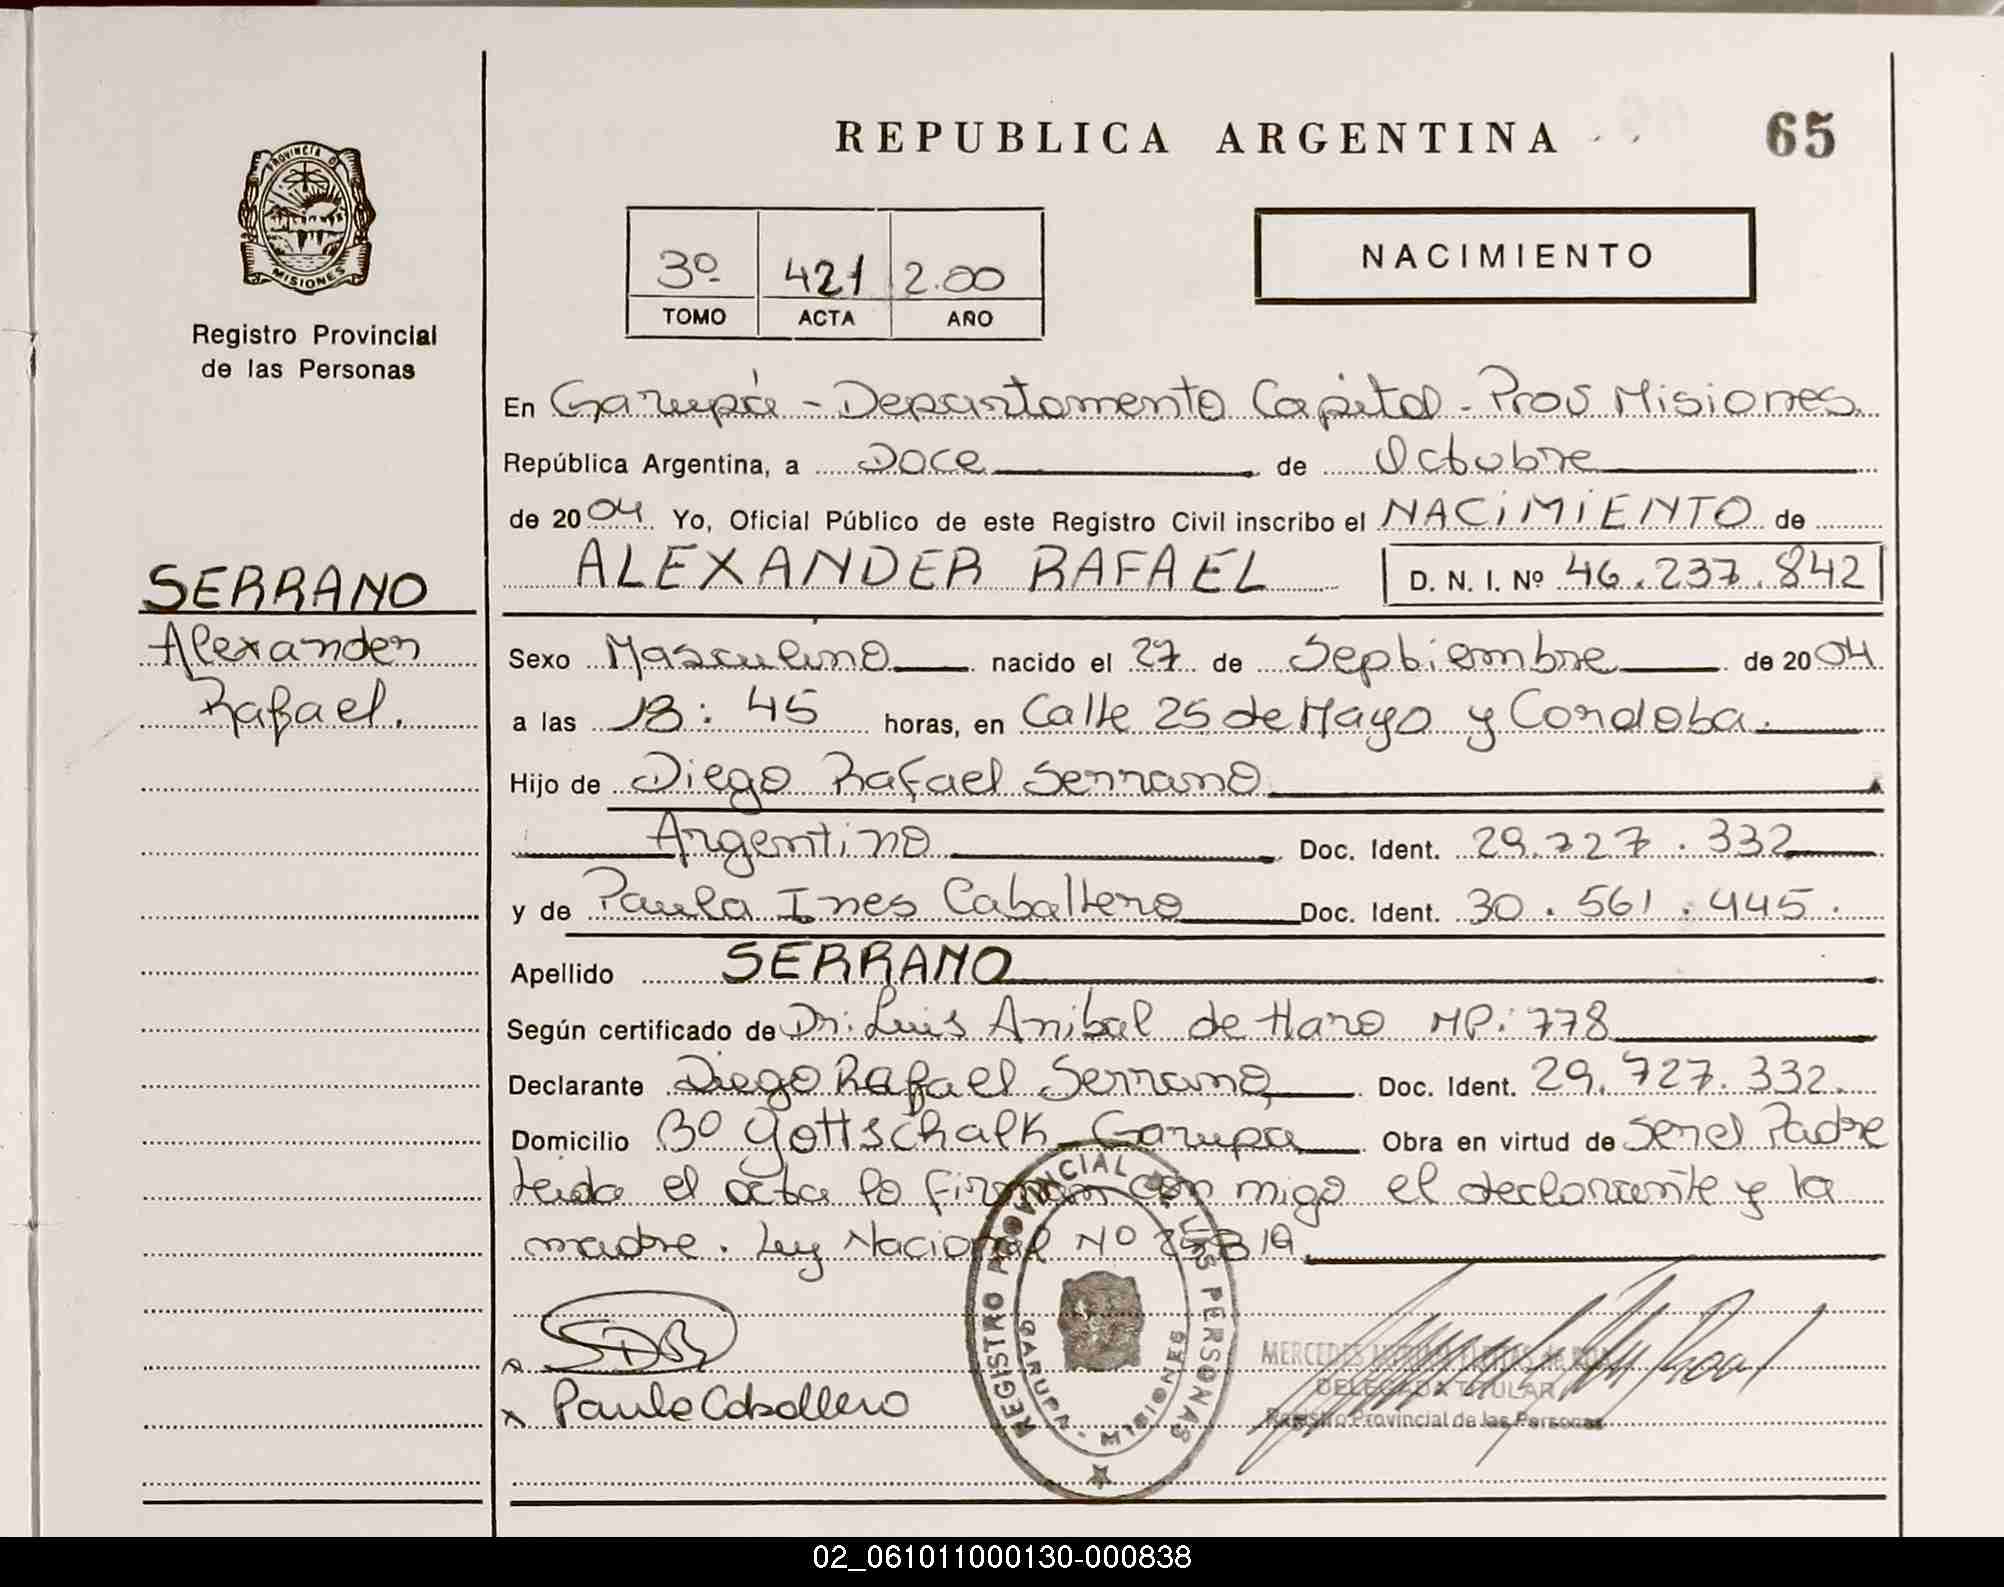 REPUBLICA ARGENTINA
65
PROVINCIA D
MISIONES
Registro Provincial
de las Personas
3º 421 2.00
TOMO ACTA AÑO
NACIMIENTO
En Garupá - Departamento Capital - Prov Misiones
República Argentina, a Doce de Octubre
de 2004 Yo, Oficial Público de este Registro Civil inscribo el NACIMIENTO de
ALEXANDER RAFAEL D. N. I. Nº 46.237.842
SERRANO
Alexander
Rafael.
Sexo Masculino nacido el 27 de Septiembre de 2004
a las 13:45 horas, en Calle 25 de Mayo y Cordoba.
Hijo de Diego Rafael Serrano
Argentino Doc. Ident. 29.727.332
y de Paula Ines Caballero Doc. Ident. 30.561.445.
Apellido SERRANO
Según certificado de Dr: Luis Anibal de Haro MP: 778
Declarante Diego Rafael Serrano, Doc. Ident. 29.727.332.
Domicilio Bº Gottschalk - Garupá Obra en virtud de Ser el Padre
leida el acta lo firman con migo el declarante y la
madre. Ley Nacional Nº
REGISTRO PROVINCIAL DE LAS PERSONAS
GARUPA - MISIONES
MERCEDES
DELEGADA TITULAR
Registro Provincial de las Personas
x Paula Caballero
02_061011000130-000838